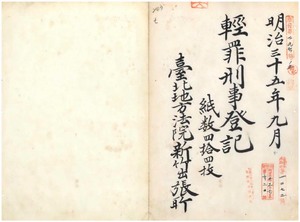 明治三十五年九月
輕罪刑事登記
紙数四拾四枚
臺北地方法院新竹出張所